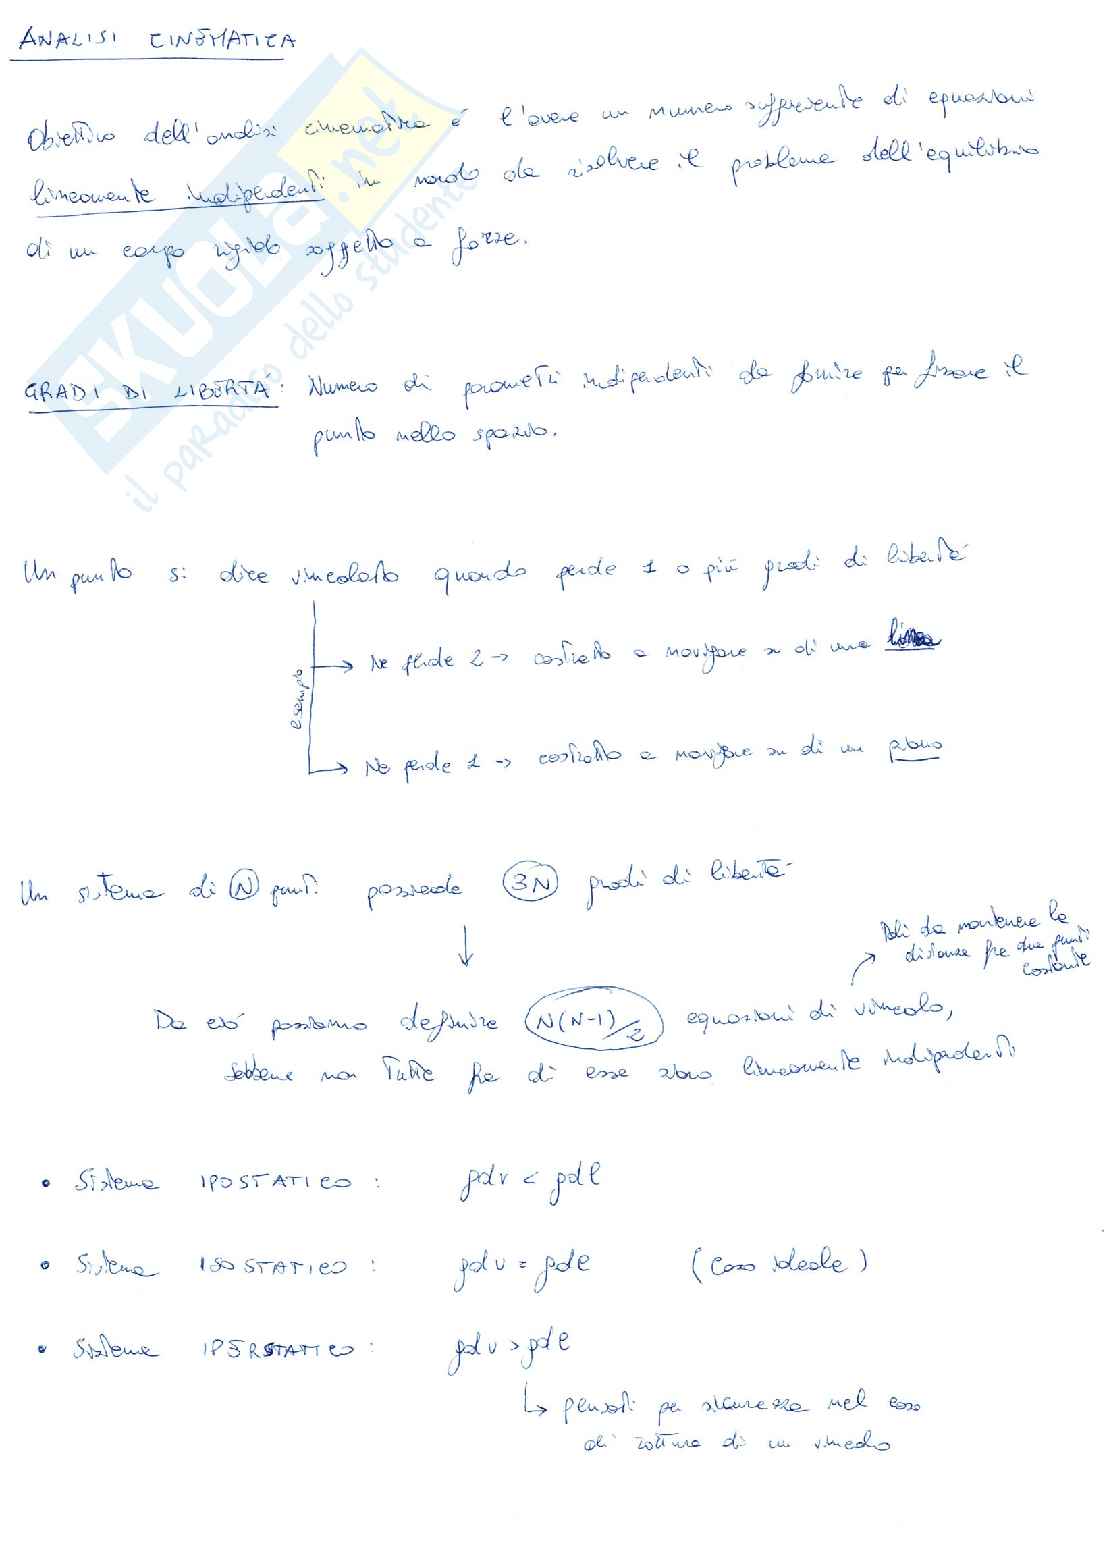 ANALISI CINEMATICA
Obiettivo dell'analisi cinematica é l'avere un numero sufficiente di equazioni
linearmente indipendenti in modo da risolvere il problema dell'equilibrio
di un corpo rigido soggetto a forze.
GRADI DI LIBERTÁ: Numero di parametri indipendenti da fornire per fissare il
punto nello spazio.
Un punto si dice vincolato quando perde 1 o più gradi di libertá
esempio
Ne perde 2 → costretto a navigare su di una linea
Ne perde 1 → costretto a navigare su di un piano
Un sistema di N punti possiede 3N gradi di libertá
Tali da mantenere la
distanza fra due punti
costante
Da ció possiamo definire N(N-1)/2 equazioni di vincolo,
sebbene non tutte fra di esse siano linearmente indipendenti
• Sistema IPOSTATICO : gdv < gdl
• Sistema ISOSTATICO : gdv = gdl (caso ideale)
• Sistema IPERSTATICO : gdv > gdl
↳ pensati per sicurezza nel caso
di rottura di un vincolo
SKUOLA.net
il paradiso dello studente